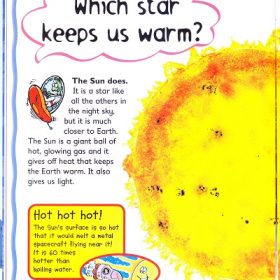 Which star
keeps us warm?
The Sun does.
It is a star like
all the others in
the night sky,
but it is much
closer to Earth.
The Sun is a giant ball of
hot, glowing gas and it
gives off heat that keeps
the Earth warm. It also
gives us light.
Hot hot hot!
The Sun's surface is so hot
that it would melt a metal
spacecraft flying near it!
It is 60 times
hotter than
boiling water.